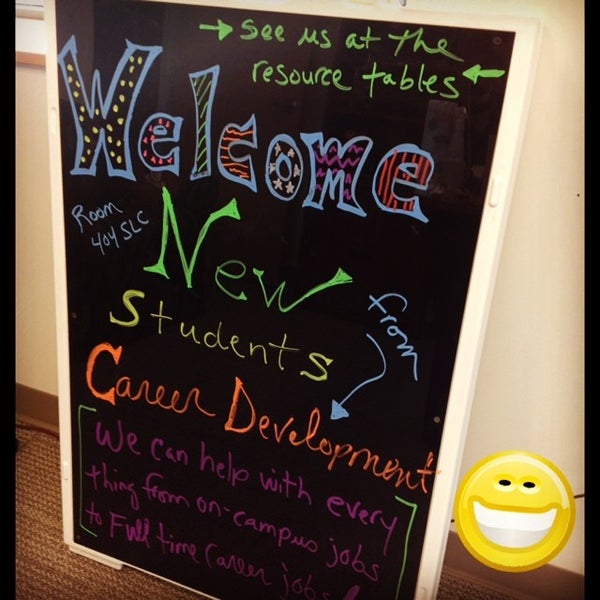 → See us at the
resource tables ←
Welcome
Room
404 SLC
New
Students
from
Career Development
We can help with every
thing from on-campus jobs
to Full time Career jobs!